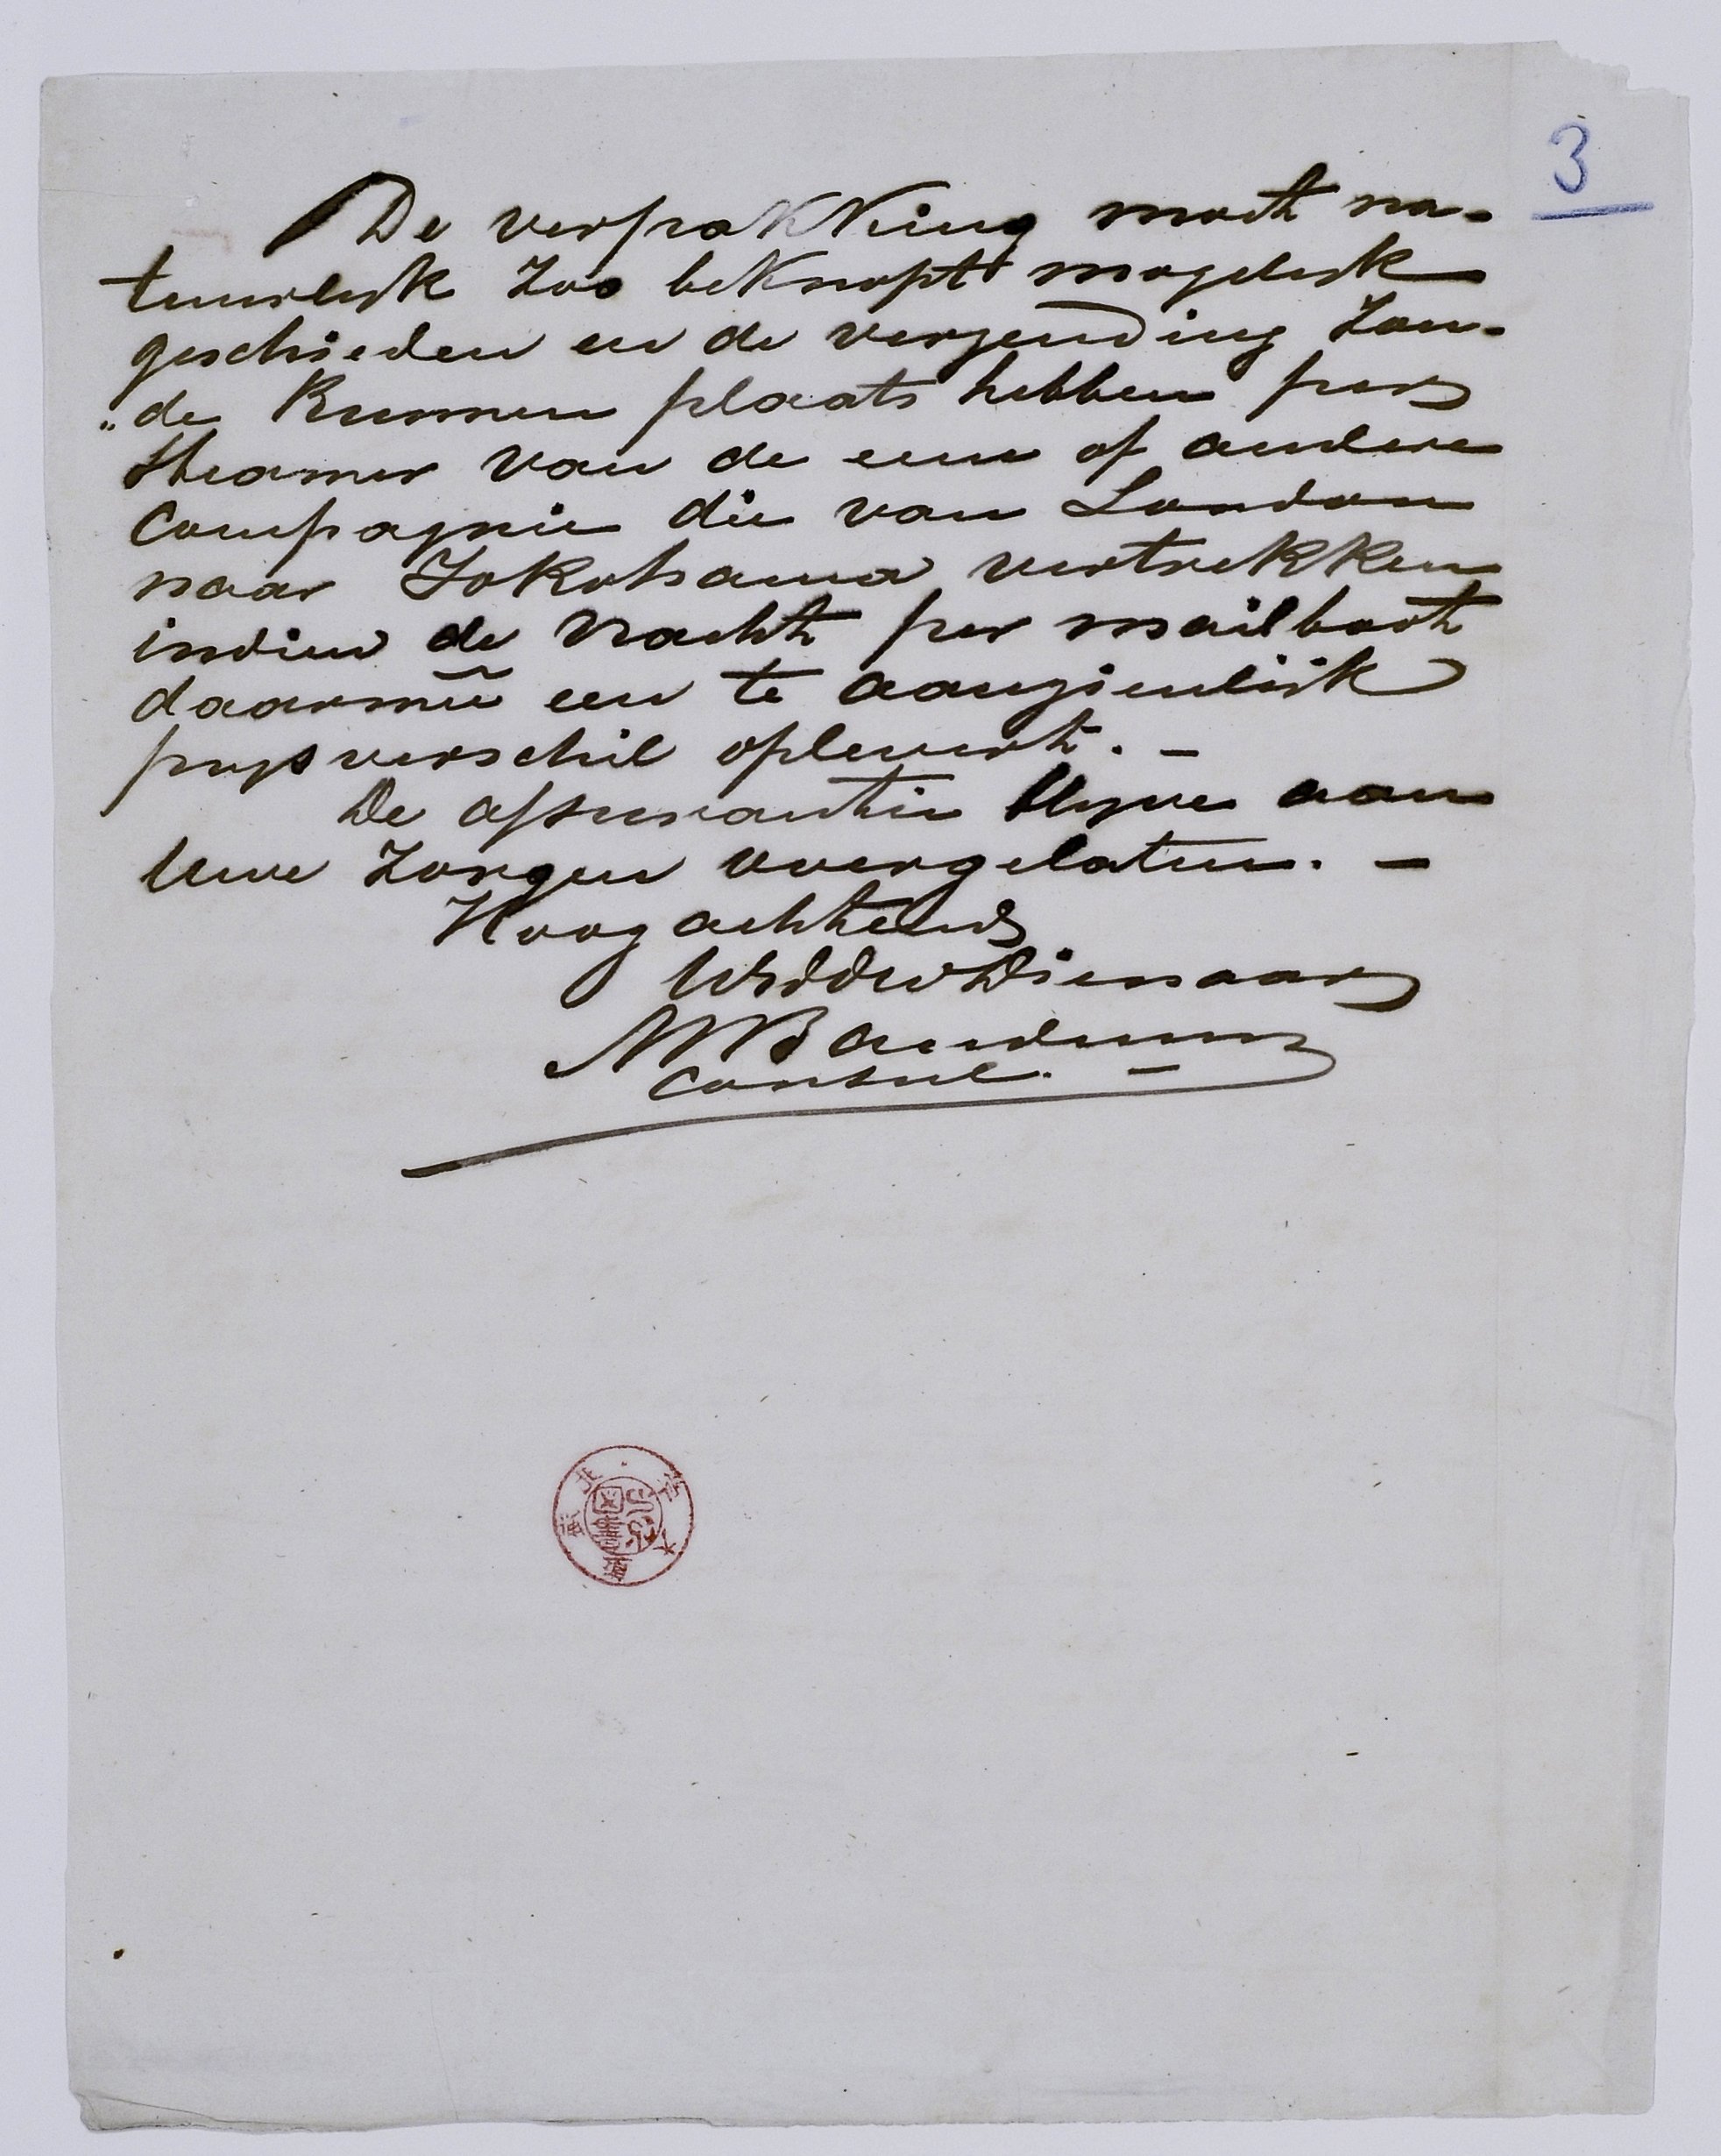 3
De verpakking moet na-
tuurlijk zoo beknopt mogelijk
geschieden en de verzending zou-
"de kunnen plaats hebben per
steamer van de eene of andere
Compagnie die van London
naar Jokohama vertrekken
indien de vracht per mailboot
daarmeê een te aanzienlijk
prijsverschil oplevert. -
De assurantie blijve aan
Uwe zorgen overgelaten. -
Hoogachtend
UEd dw Dienaar
Bauduin
Consul. -
北海